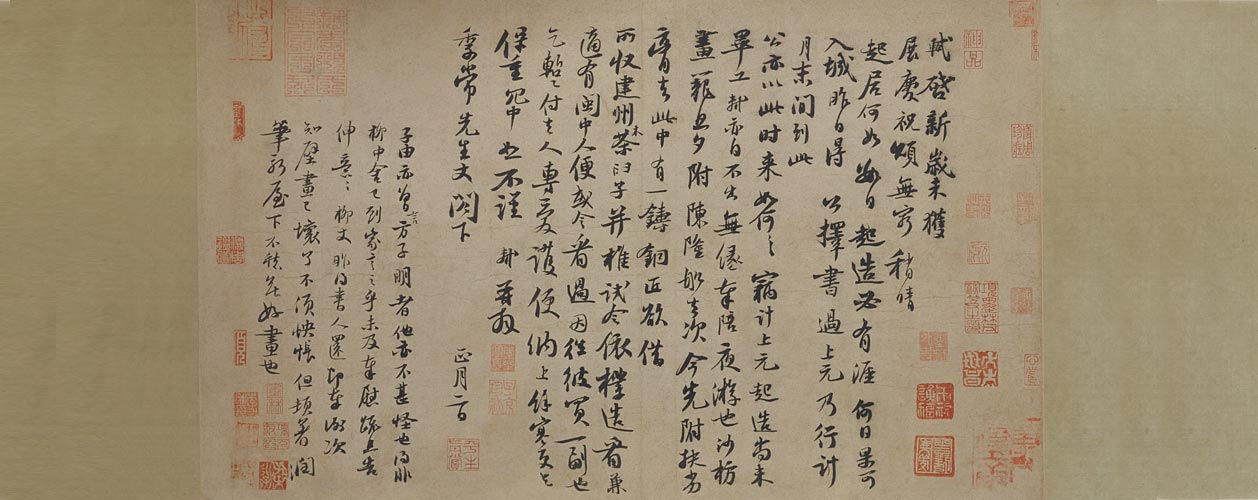 軾啓新歲未獲
展慶祝頌無窮稍晴
起居何如數日起造必有涯何日果可
入城昨日得公擇書過上元乃行計
月末間到此
公亦以此時來如何〻竊計上元起造尚未
畢工軾亦自不出無緣奉陪夜游也沙枋
畫籠旦夕附陳隆船去次今先附扶劣
膏去此中有一鑄銅匠欲借
所收建州木茶臼子并椎試令依樣造看兼
適有閩中人便或令看過因往彼買一副也
乞暫〻付去人專愛護便納上餘寒更乞
保重冗中恕不謹 軾再拜
季常先生丈閣下 正月二日
子由亦曾言方子明者他亦不甚怪也得非
柳中舍已到家言之乎未及奉慰疏且告
伸意〻柳丈昨得書人還即奉謝次
知壁畫已壞了不須怏悵但頓著潤
筆新屋下不愁無好畫也